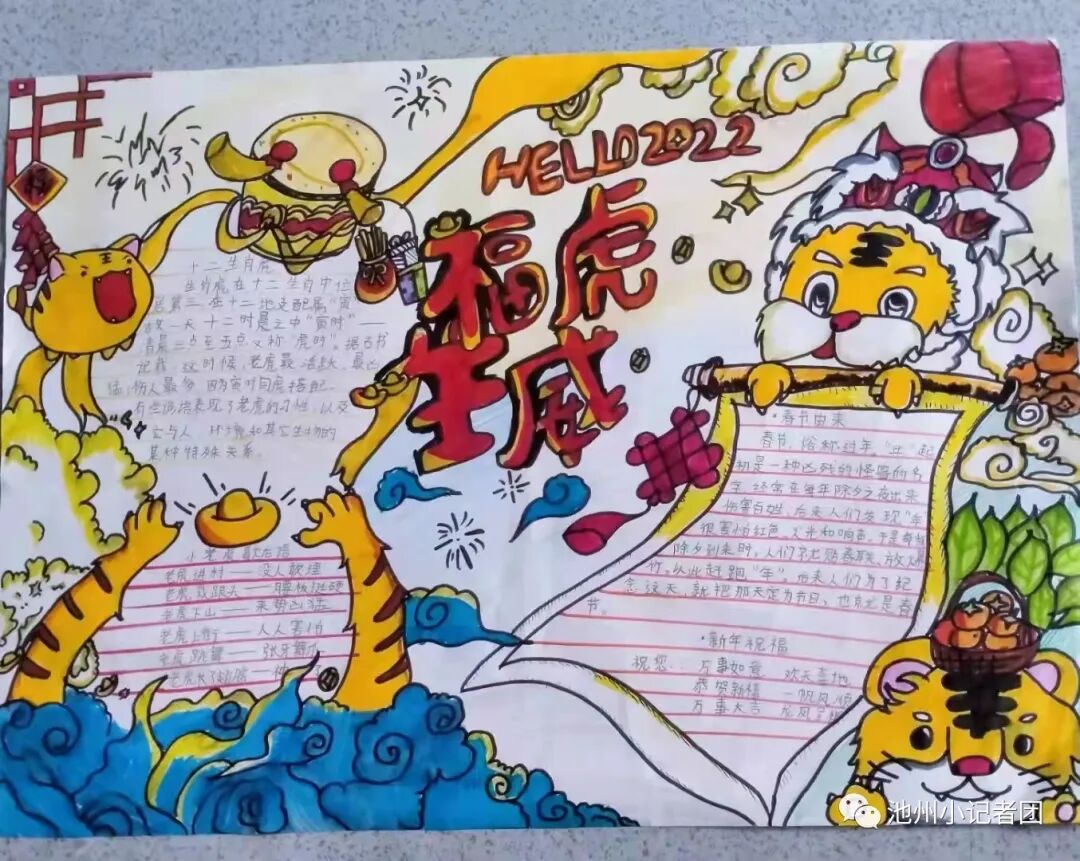 HELLO2022
福虎
生威
十二生肖虎
生肖虎在十二生肖中位
居第三,在十二地支配属“寅”
故一天十二时晨之中“寅时”——
清晨三点至五点又称“虎时”。据古书
记载,这时候,老虎最活跃、最凶
猛,伤人最多
有些
表现了老虎的习性,以及
它与人、环境和其它生物的
某种特殊关系。
小老虎歇后语
老虎进村——没人敢理
老虎
老虎下山——来势凶猛
老虎上街——人人害怕
老虎跳舞——张牙舞爪
·春节由来
春节,俗称过年。“年”起
初是一种凶残的怪兽的名
字,经常在每年除夕之夜出来
伤害百姓,后来人们发现“年”
很害怕红色、火光和响声,于是每当
除夕到来时,人们
贴春联、放
竹,从此赶跑“年”。后来人们为了纪
念这天,就把那天定为节日,也就是春
节。
·新年祝福
祝您: 万事如意 欢天喜地
恭贺新禧 一帆风顺
万事大吉
池州小记者团